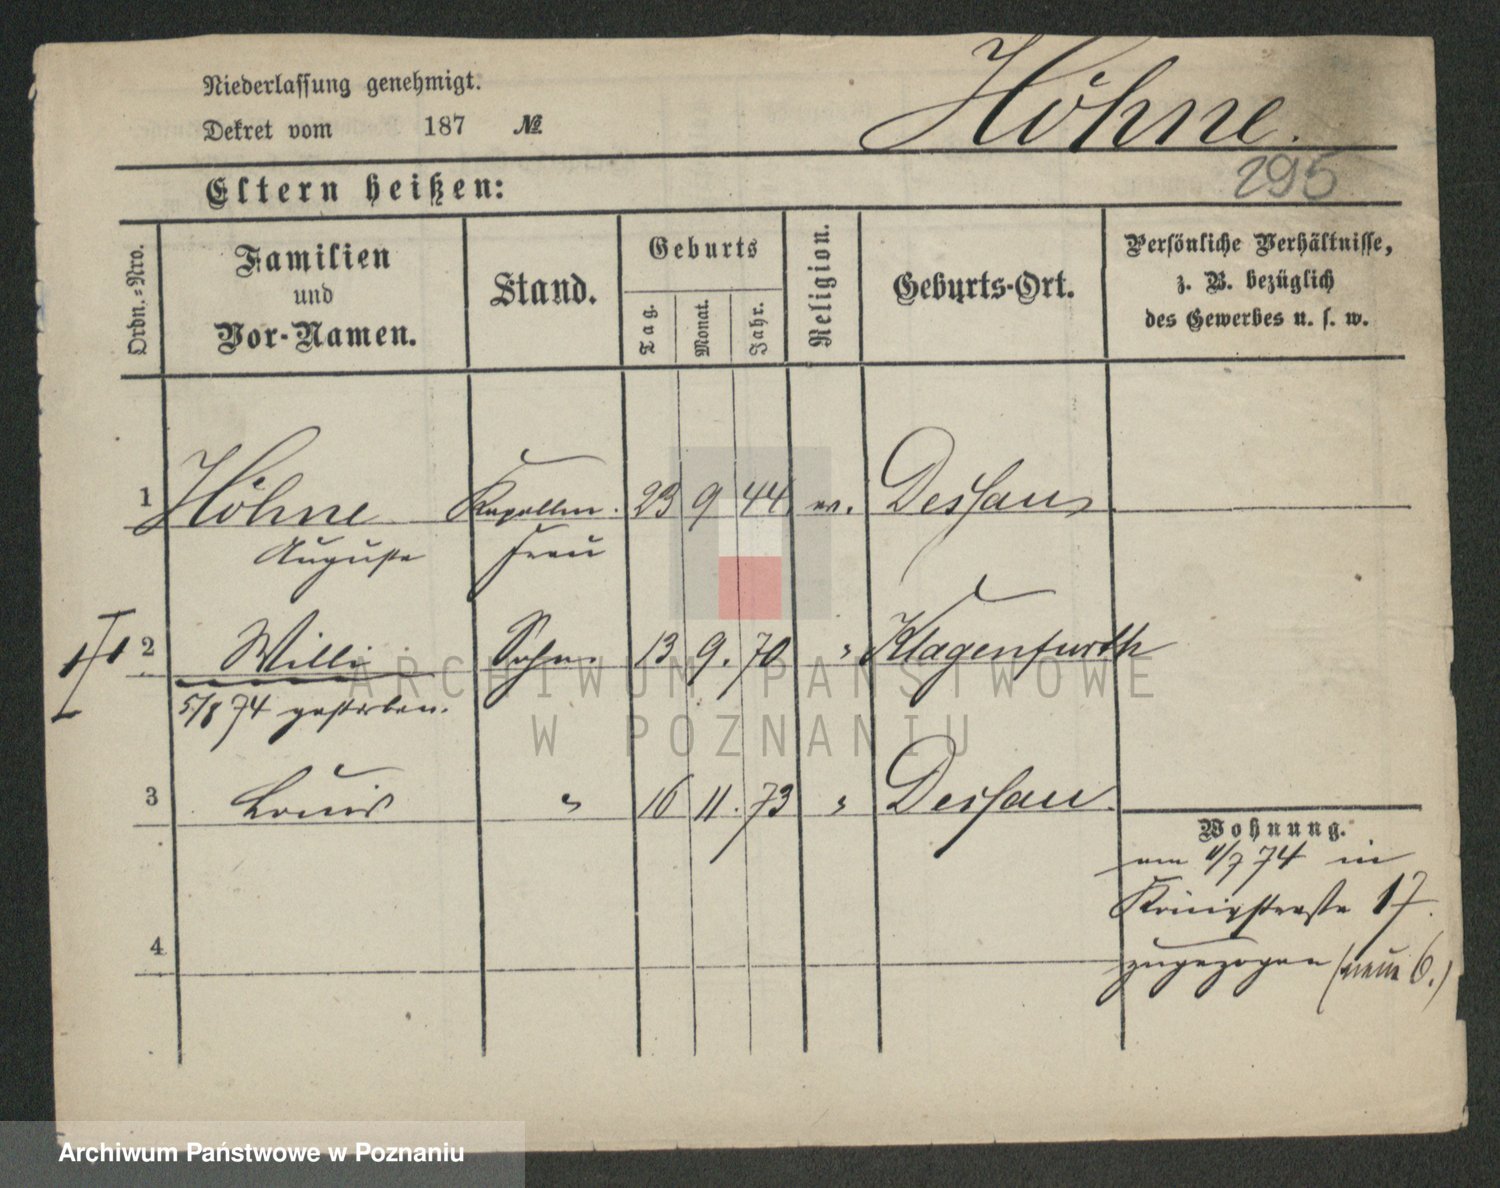 Niederlassung genehmigt.
Dekret vom 187 №
Höhne.
295
Eltern heißen:
Ordn.-Nro.
Familien
und
Vor-Namen.
Stand.
Geburts
Tag.
Monat.
Jahr.
Religion.
Geburts-Ort.
Persönliche Verhältnisse,
z. B. bezüglich
des Gewerbes u. s. w.
1 Höhne Kapellm. 23 9 44 ev. Dessau
Auguste Frau
2 Willi Sohn 13 9. 70 " Klagenfurth
5/8 74 gestorben.
3 Louis " 16 11. 73 " Dessau
Wohnung.
am 11/7 74 in
Königstraße 17.
4
zugezogen (neue 6.)
ARCHIWUM PAŃSTWOWE
W POZNANIU
Archiwum Państwowe w Poznaniu